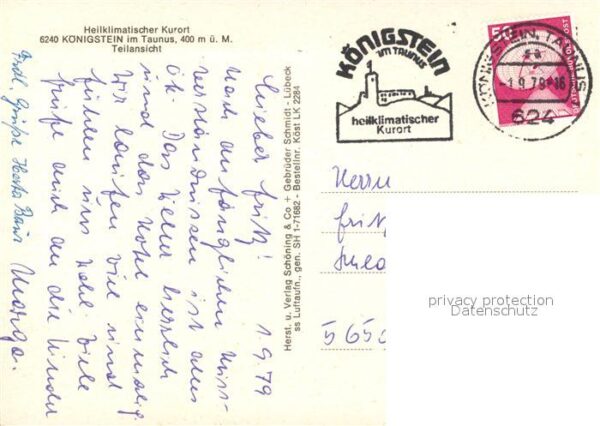 Heilklimatischer Kurort
6240 KÖNIGSTEIN im Taunus, 400 m ü. M.
Teilansicht
1.9.79
Lieber Fritz!
Nach anfänglichen Miss-
verständnissen ist alles
ok. Das Wetter herrlich
und das Hotel einmalig.
Wir laufen viel und
fühlen uns wohl. Viele
Grüße auch an die Kinder
Marga.
Frdl. Grüße Herta
Herst. u. Verlag Schöning & Co + Gebrüder Schmidt - Lübeck
ss Luftaufn., gen. SH 1-71682 - Bestellnr. Köst LK 2284
KÖNIGSTEIN
IM TAUNUS
heilklimatischer
Kurort
KÖNIGSTEIN, TAUNUS
sa
-1.9.79-16
624
50
Herrn
Fritz
565
privacy protection
Datenschutz